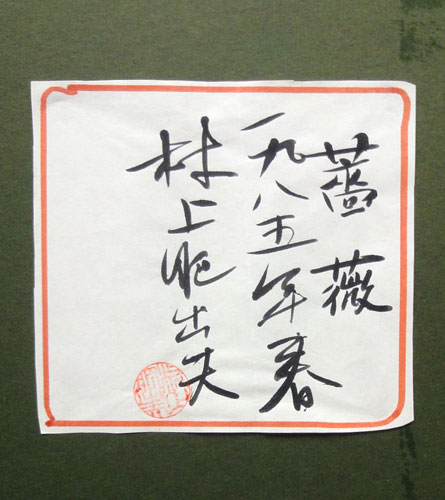 薔薇
一九八五年春
村上肥出夫